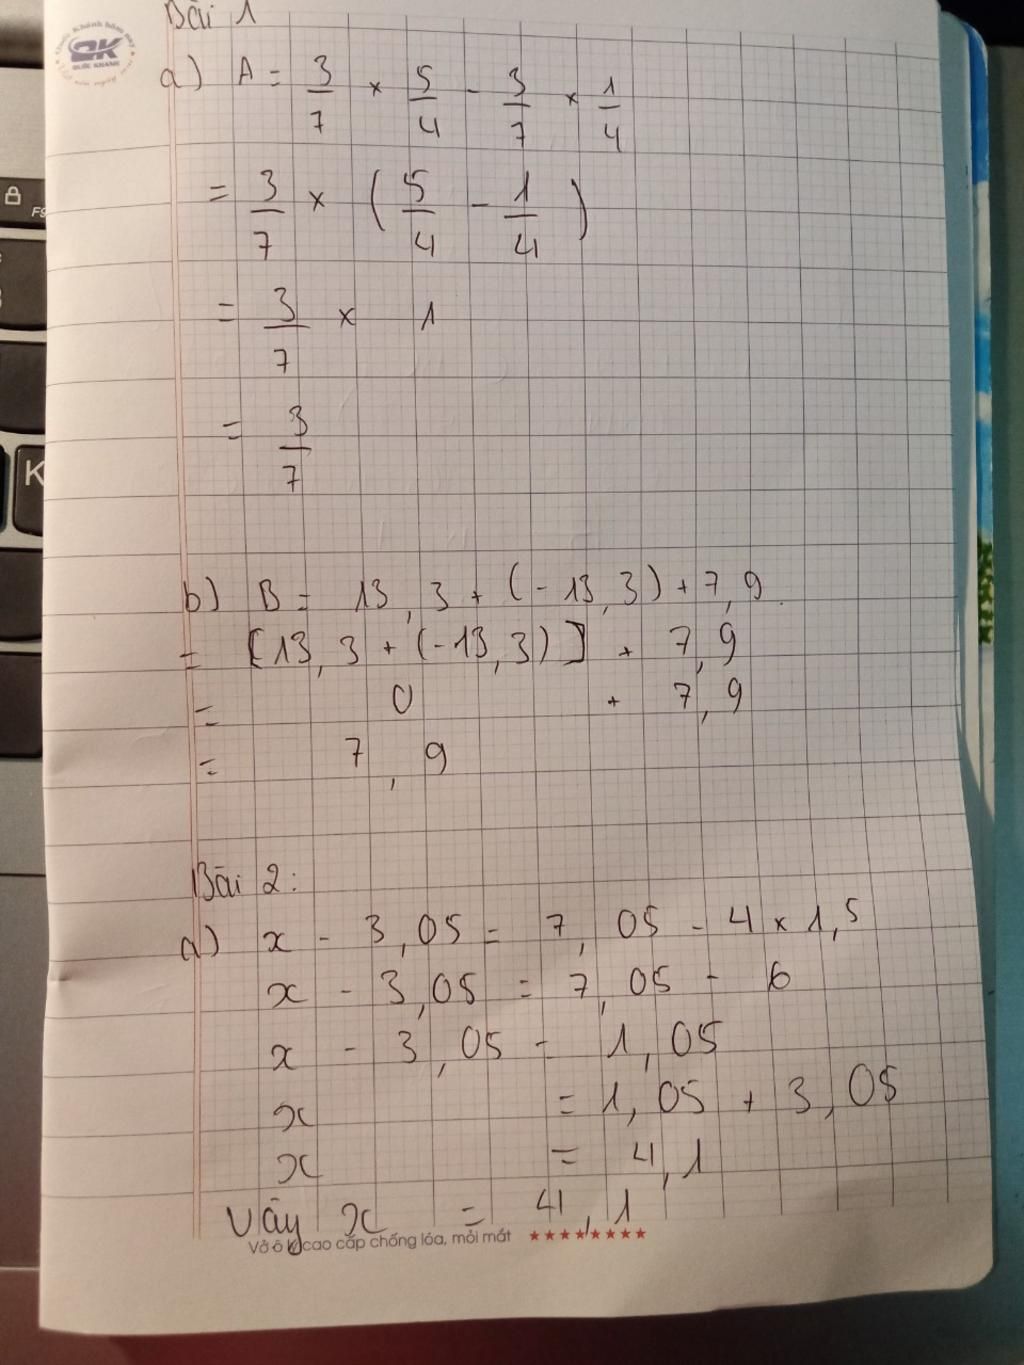 Bài 1
a) A = 3/7 × 5/4 - 3/7 × 1/4
= 3/7 × (5/4 - 1/4)
= 3/7 × 1
= 3/7
b) B = 13,3 + (-13,3) + 7,9
= [13,3 + (-13,3)] + 7,9
= 0 + 7,9
= 7,9
Bài 2:
a) x - 3,05 = 7,05 - 4 × 1,5
x - 3,05 = 7,05 - 6
x - 3,05 = 1,05
x = 1,05 + 3,05
x = 4,1
Vậy x = 4,1
Vở ô ly cao cấp chống lóa, mỏi mắt ★★★★★★★★
QK
QUỐC KHÁNH
F9
K